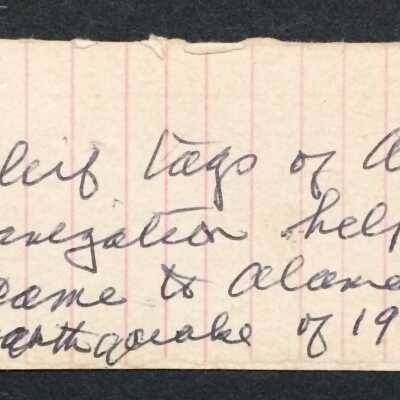 lief tags of
nization help
came to Alame
earthquake of 19